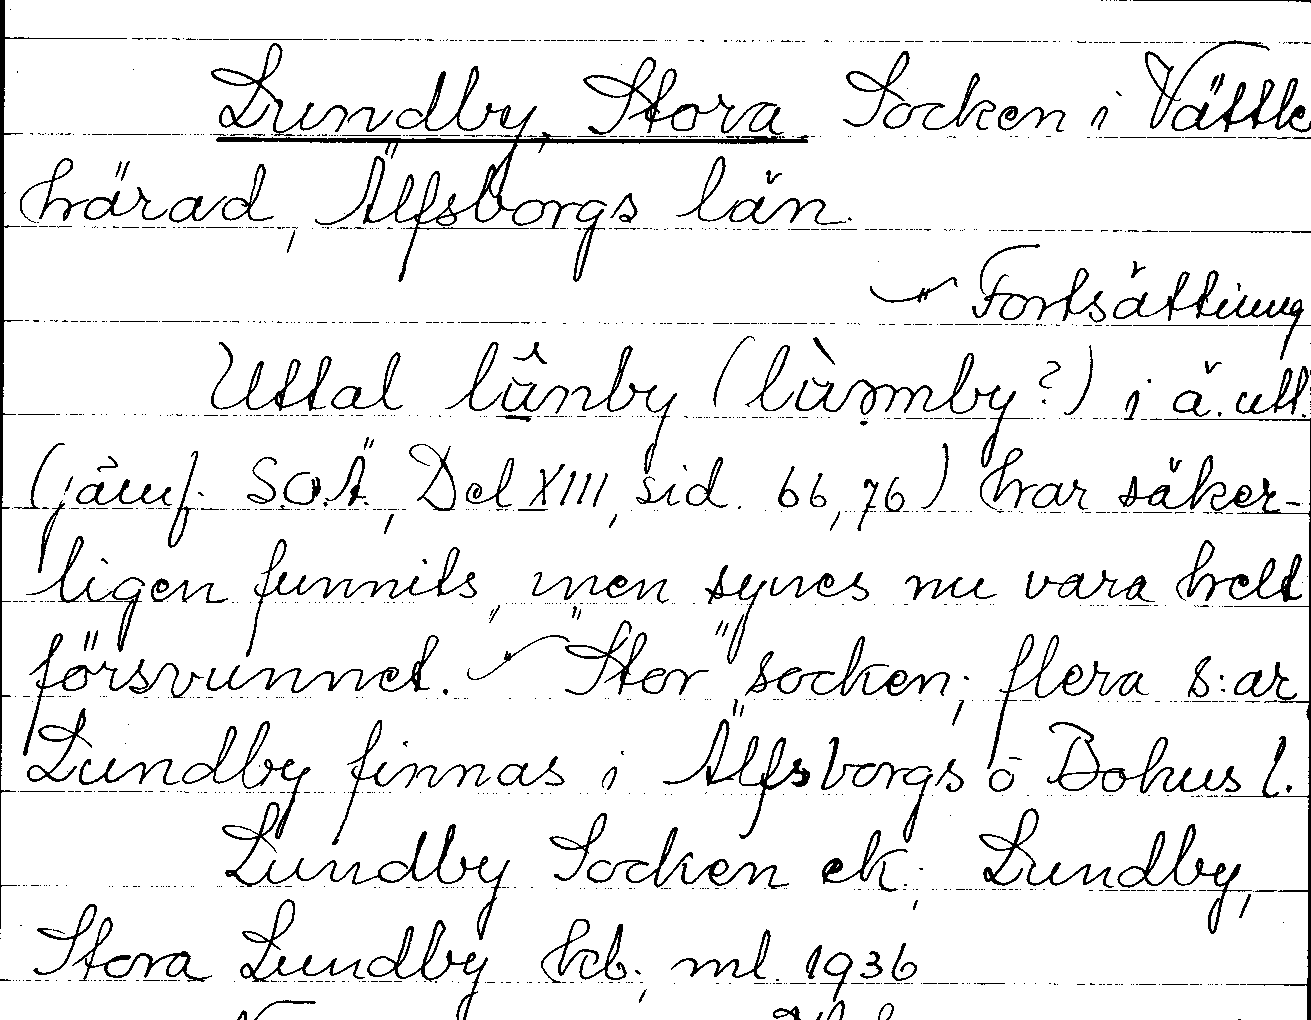 Lundby, Stora Socken i Vättle
härad, Älfsborgs län.
Fortsättning
Uttal lünby (lùmby?) i ä. utt.
(jämf. S.O.Ä., Del XIII, sid. 66, 76) har säker-
ligen funnits, men synes nu vara helt
försvunnet. "Stor" socken; flera s:ar
Lundby finnas i Älfsborgs o Bohus l.
Lundby Socken ek.; Lundby,
Stora Lundby kb.; ml. 1936